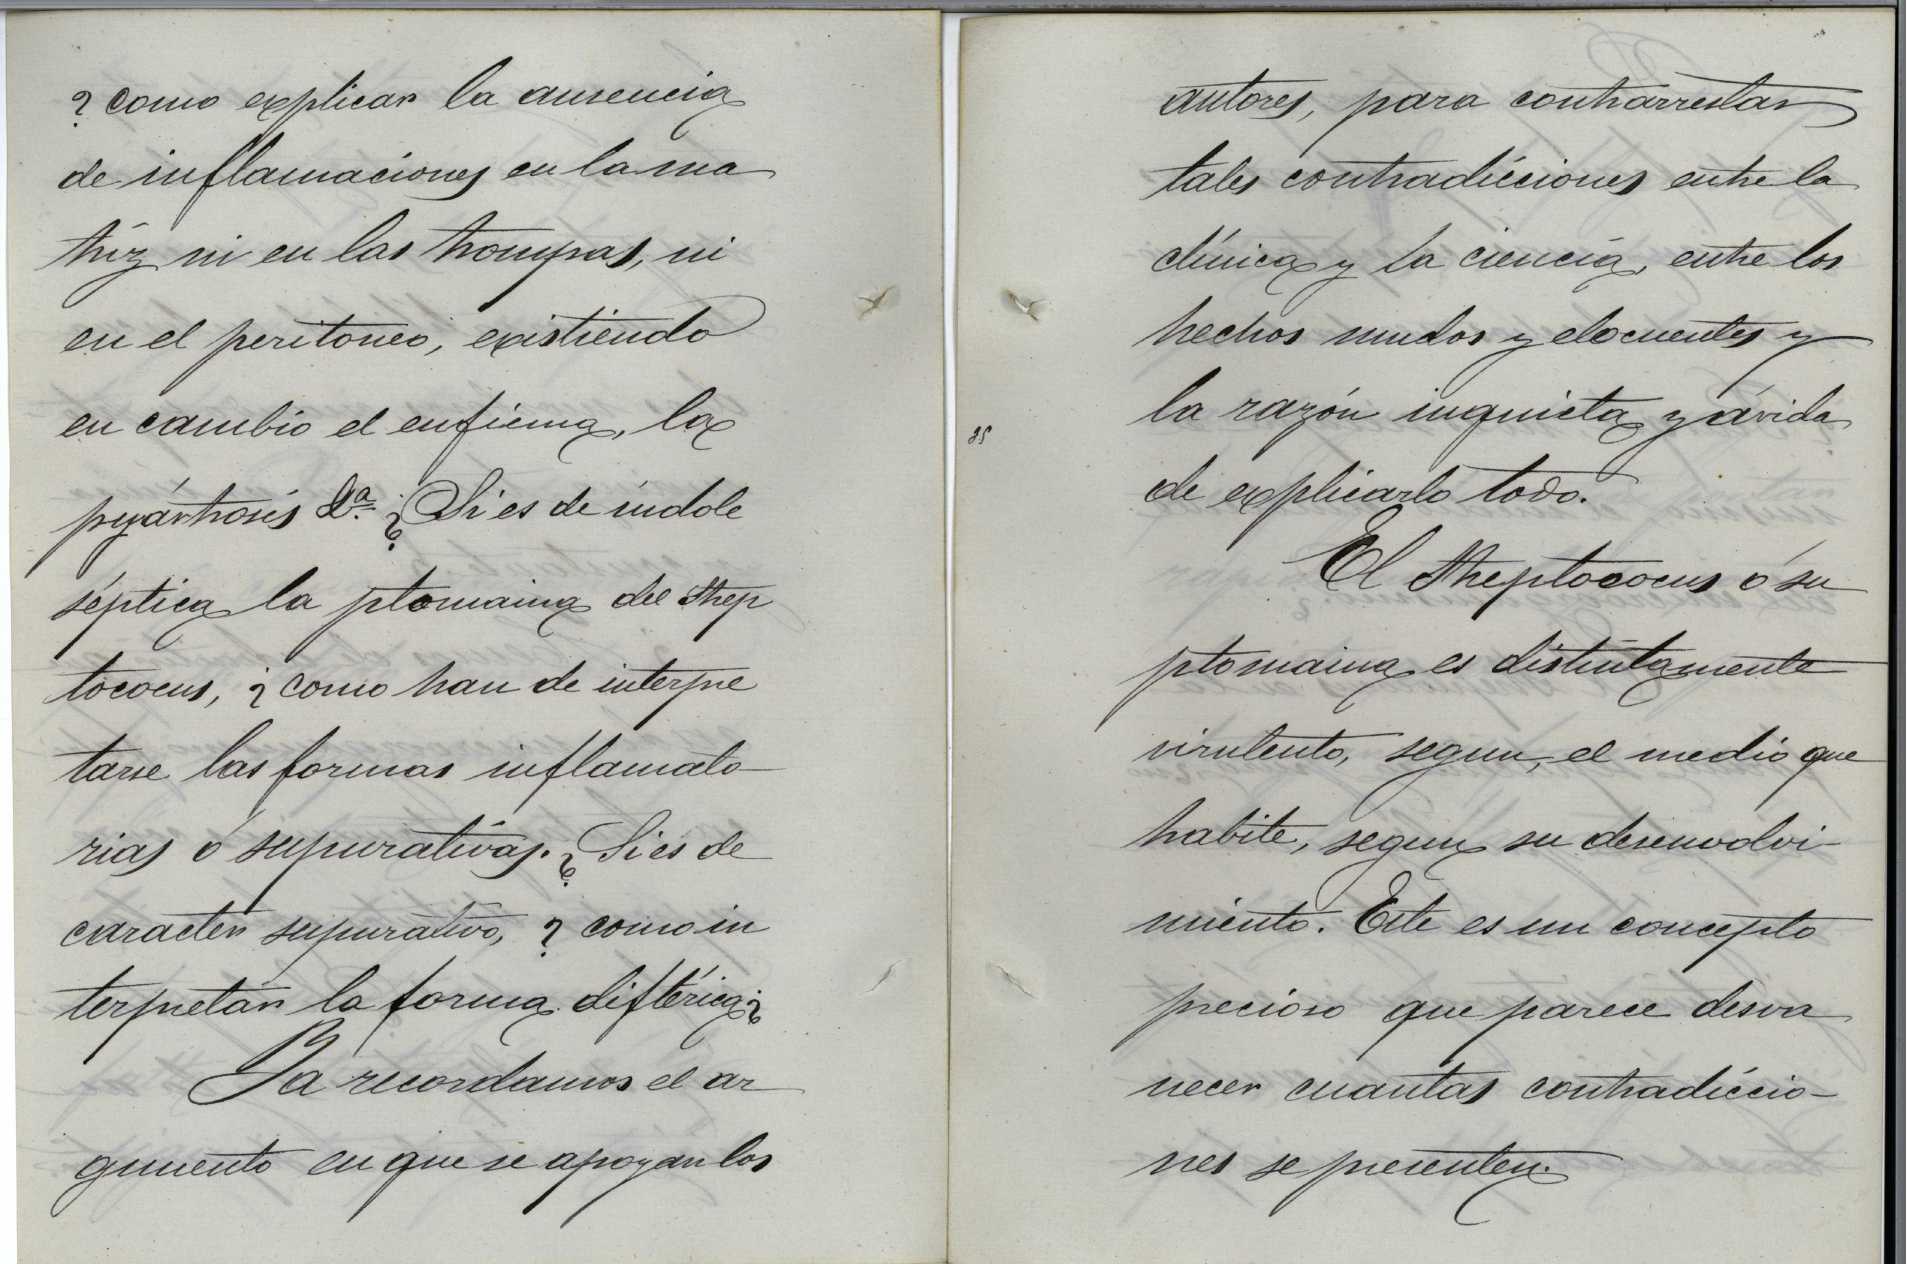 ¿como explicar la ausencia
de inflamaciones en la ma
triz ni en las trompas, ni
en el peritoneo, existiendo
en cambio el enfiema, la
pyártrosis &ª? Si es de índole
séptica la ptomaina del strep
tococus, ¿como han de interpre
tarse las formas inflamato-
rias ó supurativas.? Si es de
caracter supurativo, ¿como in
terpretar la forma diftérica?
Ya recordamos el ar
gumento en que se apoyan los
autores, para contrarrestar
tales contradicciones entre la
clínica y la ciencia, entre los
hechos mudos y elocuentes y
la razón inquieta y ávida
de explicarlo todo.
El streptococus ó su
ptomaina es distintamente
virulento, segun, el medio que
habite, segun su desenvolvi-
miento. Este es un concepto
precioso que parece desva
necer cuantas contradiccio-
nes se presenten.